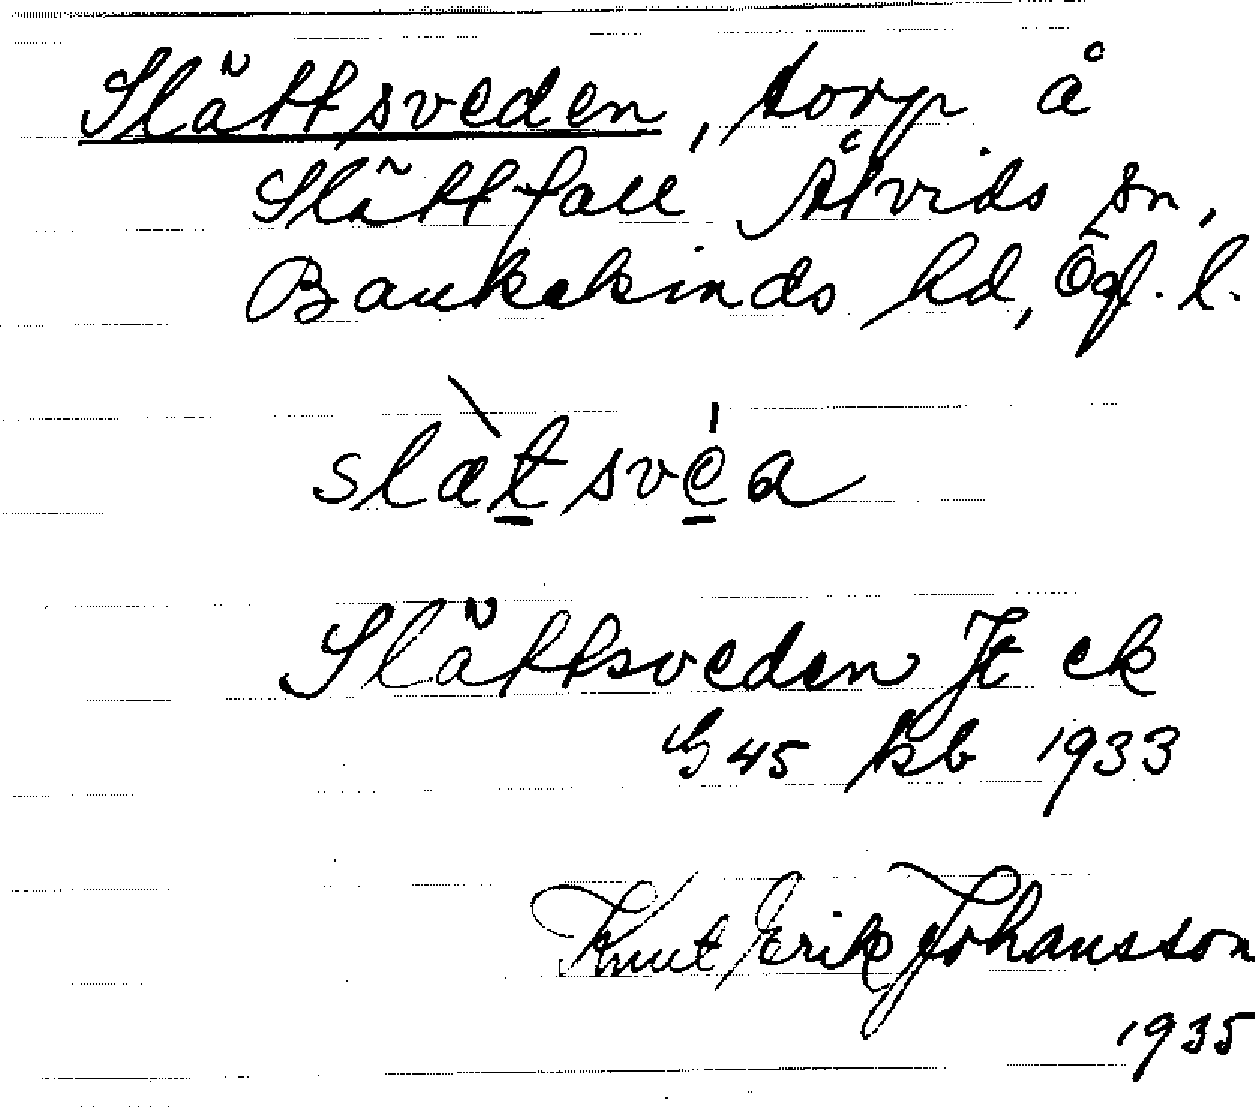 Slättsveden, torp å
Slättfall Åtvids sn,
Bankekinds hd, Ögl. l.
slætsvéa
Slättsveden Jt ek
G 45 kb 1933
Knut Erik Johansson
1935